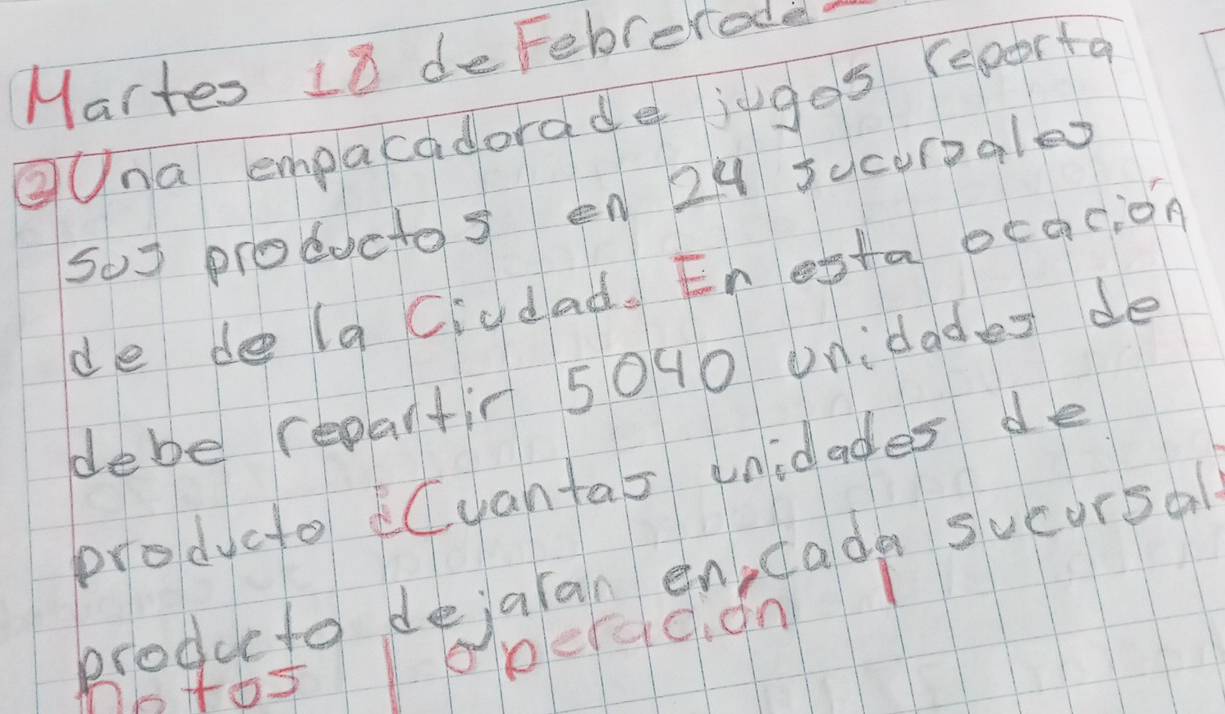 Martes 18 de Febrero de
② Una empacadora de jugos reporta
sus productos en 24 sucursales
de de la Ciudad. En esta ocación
debe repartir 5040 unidades de
producto ¿Cuantas unidades de
producto dejaran en cada sucursal?
Datos | operación |